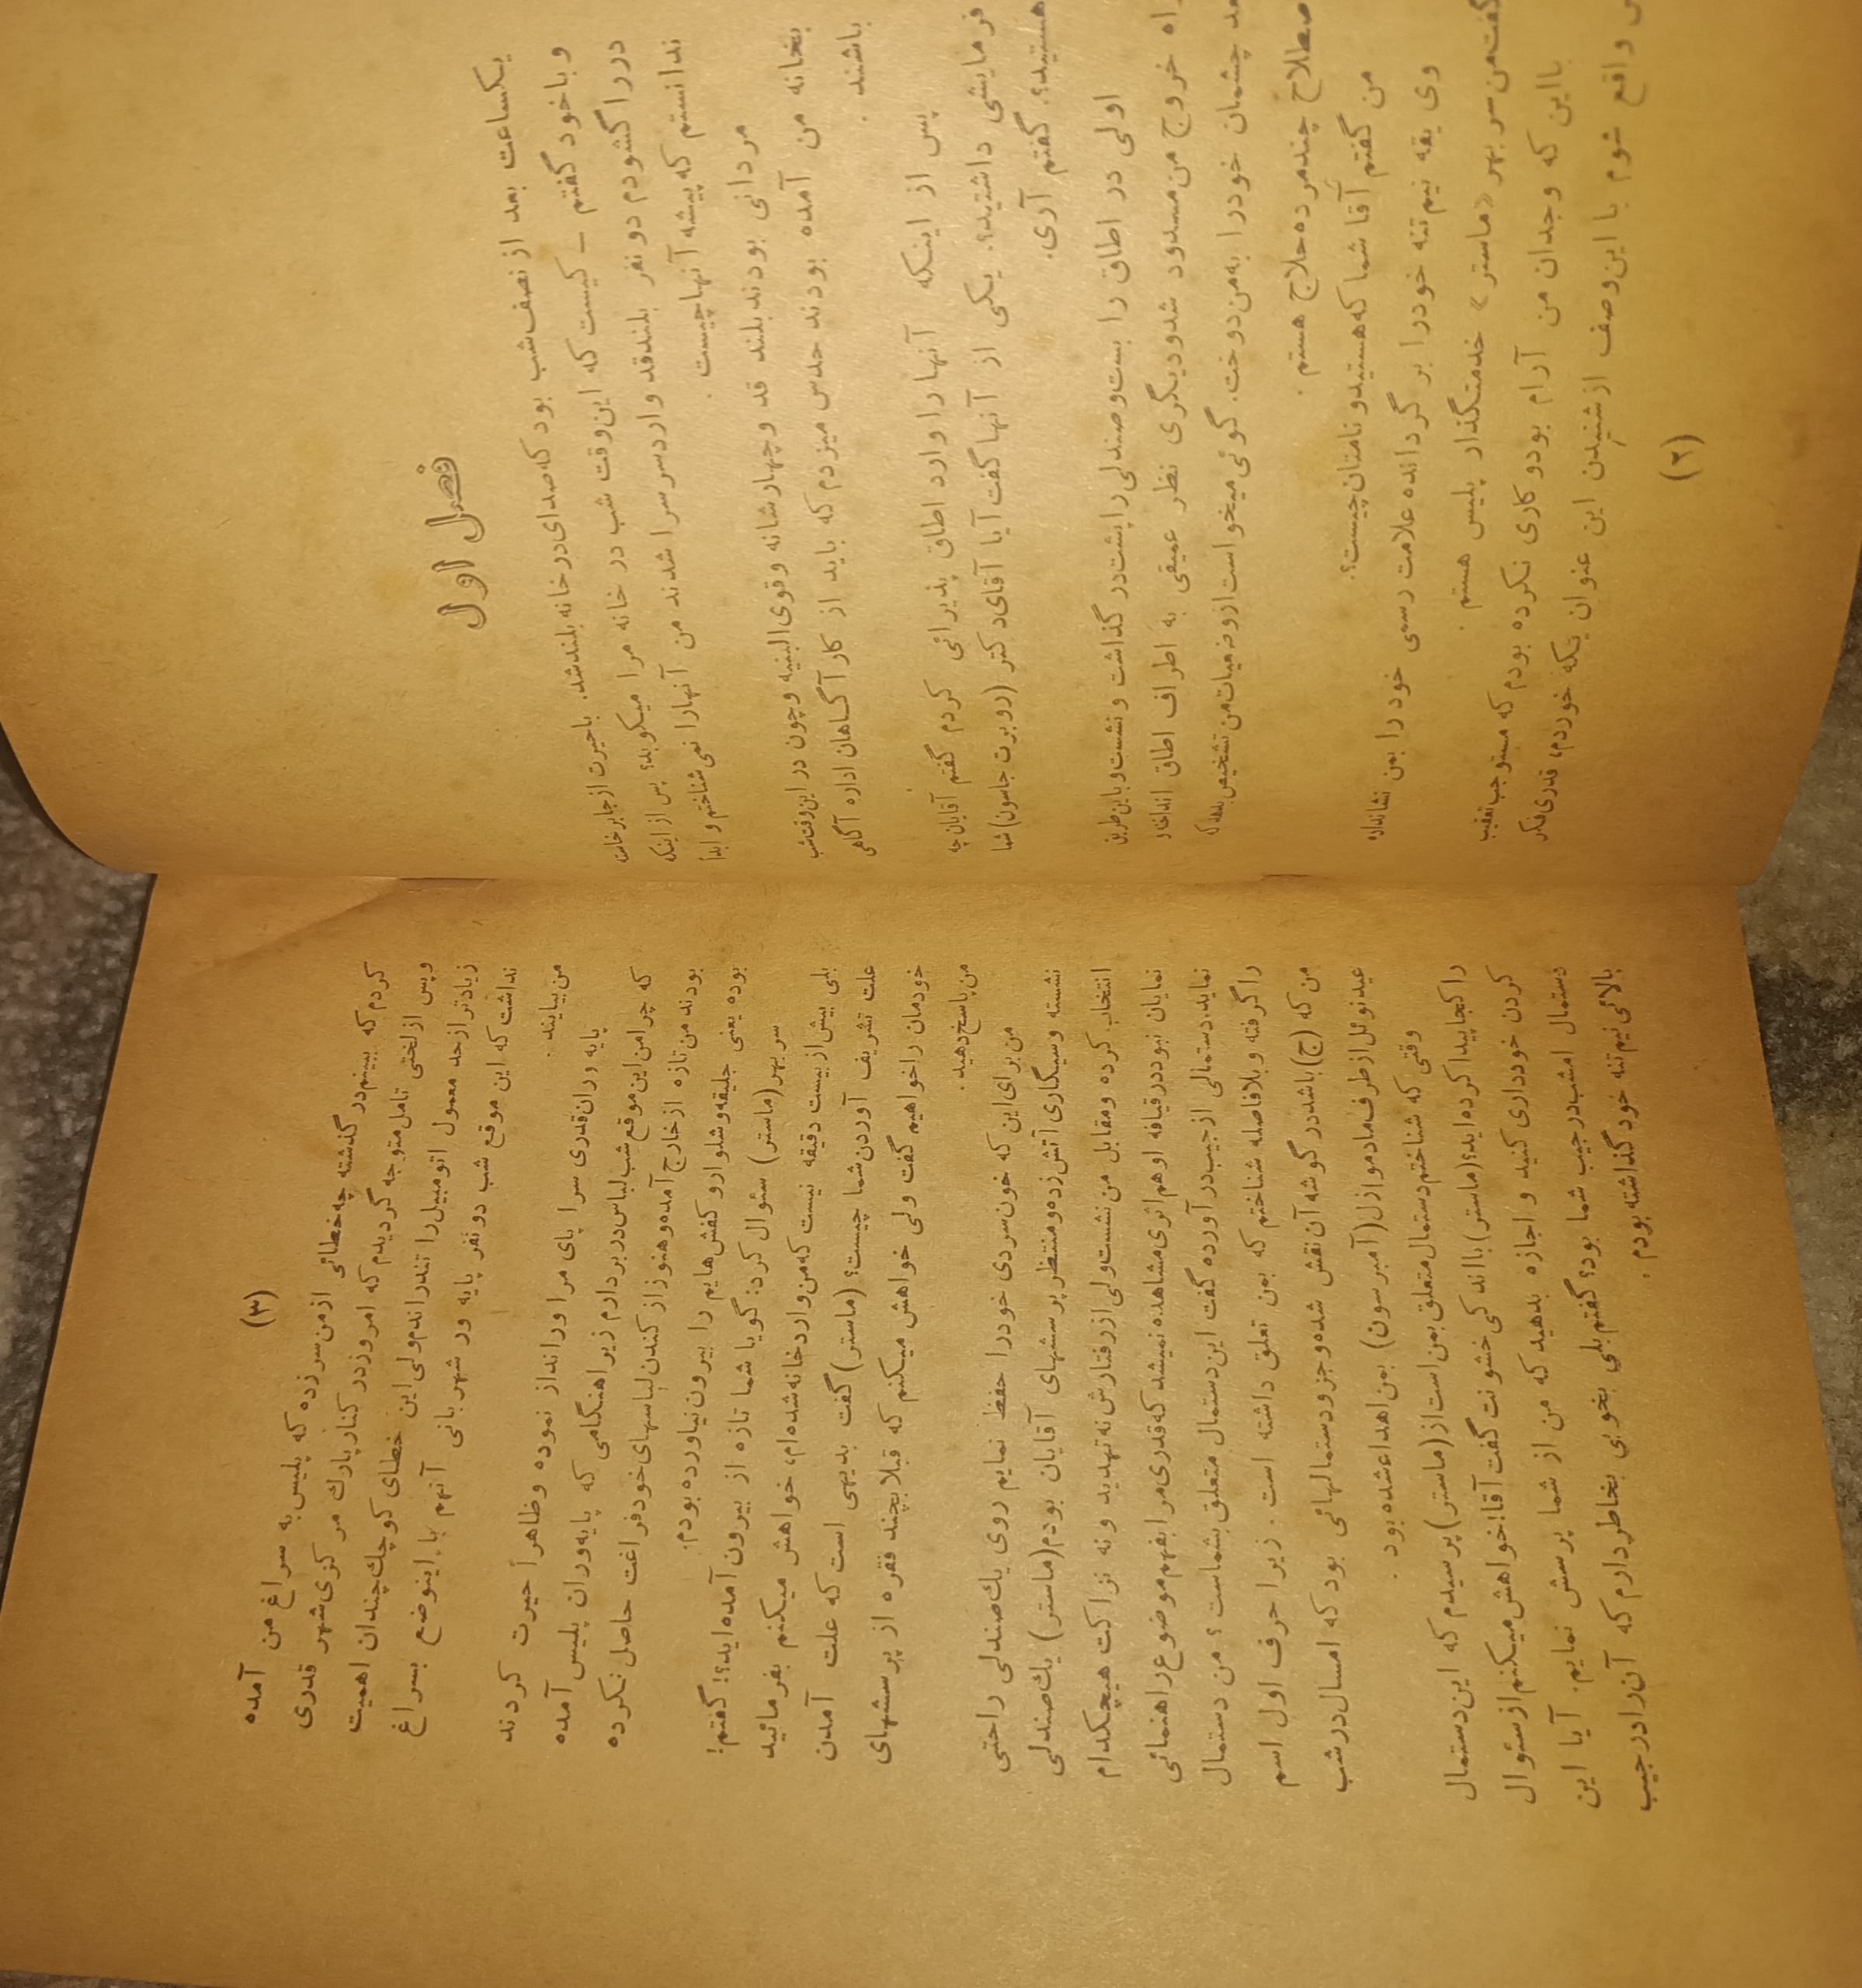 فصل اول
یکساعت بعد از نصف شب بود که صدای در خانه بلند شد. باحیرت از جا برخاست
و باخود گفتم - کیست که این وقت شب در خانه مرا میکوبد؟ پس از اینکه
در را گشودم دو نفر بلند قد وارد سرسرا شدند من آنها را نمی شناختم و ابدا
ندانستم که پیشه آنها چیست.
مردانی بودند بلند قد و چهارشانه و قوی البنیه و چون در این وقت شب
بخانه من آمده بودند حدس میزدم که باید از کار آگاهان اداره آگاهی
باشند.
پس از اینکه آنها را وارد اطاق پذیرائی کردم گفتم آقایان چه
فرمایشی داشتید؟. یکی از آنها گفت آیا آقای دکتر (روبرت جانسون) شما
هستید؟. گفتم آری.
اولی در اطاق را بست و صندلی را پشت در گذاشت و نشست و باین طریق
راه خروج من مسدود شد و دیگری نظر عمیقی به اطراف اطاق انداخت
چشمان خود را به من دوخت. گوئی میخواست از وضعیات من تشخیص بدهد که
چند مرده حلاج هستم.
من گفتم آقا شما که هستید و نامتان چیست؟.
وی یقه نیم تنه خود را برگردانده علامت رسمی خود را بمن نشان داده
گفت من سر بهر «ماستر» خدمتگذار پلیس هستم.
بااین که وجدان من آرام بود و کاری نکرده بودم که مستوجب تعقیب
واقع شوم با این وصف از شنیدن این عنوان یکه خوردم، قدری فکر
(۲)
(۳)
کردم که ببینم در گذشته چه خطائی از من سر زده که پلیس به سراغ من آمده
و پس از لختی تامل متوجه گردیدم که امروز در کنار پارك مرکزی شهر قدری
زیادتر از حد معمول اتومبیل را تند راندم ولی این خطای کوچك چندان اهمیت
نداشت که این موقع شب دو نفر پایه ور شهربانی آنهم با اینوضع بسراغ
من بیایند.
پایه وران قدری سرا پای مرا ورانداز نموده وظاهراً حیرت کردند
که چرا من این موقع شب لباس در بر دارم زیرا هنگامی که پایه وران پلیس آمده
بودند من تازه از خارج آمده و هنوز از کندن لباسهای خود فراغت حاصل نکرده
بوده یعنی جلیقه و شلوار و کفش هایم را بیرون نیاورده بودم.
سر بهر (ماستر) سئوال کرد: گویا شما تازه از بیرون آمده اید؟! گفتم!
بلی بیش از بیست دقیقه نیست که من وارد خانه شده ام، خواهش میکنم بفرمائید
علت تشریف آوردن شما چیست؟ (ماستر) گفت بدیهی است که علت آمدن
خودمان را خواهیم گفت ولی خواهش میکنم که قبلا بچند فقره از پرسشهای
من پاسخ دهید.
من برای این که خون سردی خود را حفظ نمایم روی یك صندلی راحتی
نشسته و سیگاری آتش زده و منتظر پرسشهای آقایان بودم (ماستر) یك صندلی
انتخاب کرده و مقابل من نشست ولی از رفتارش نه تهدید و نه نزاکت هیچکدام
نمایان نبود در قیافه او هم اثری مشاهده نمیشد که قدری مرا بفهم موضوع راهنمائی
نماید. دستمالی از جیب در آورده گفت این دستمال متعلق بشماست؟ من دستمال
را گرفته و بلافاصله شناختم که بمن تعلق داشته است. زیرا حرف اول اسم
من که (ج) باشد در گوشه آن نقش شده و جزو دستمالهائی بود که امسال در شب
عید نوئل از طرف مادموازل (آمبرسون) بمن اهداء شده بود.
وقتی که شناختم دستمال متعلق بمن است از (ماستر) پرسیدم که این دستمال
را کجا پیدا کرده اید؟ (ماستر) با اندکی خشونت گفت آقا! خواهش میکنم از سئوال
کردن خودداری کنید و اجازه بدهید که من از شما پرسش نمایم. آیا این
دستمال امشب در جیب شما بود؟ گفتم بلی بخوبی بخاطر دارم که آن را در جیب
بالائی نیم تنه خود گذاشته بودم.